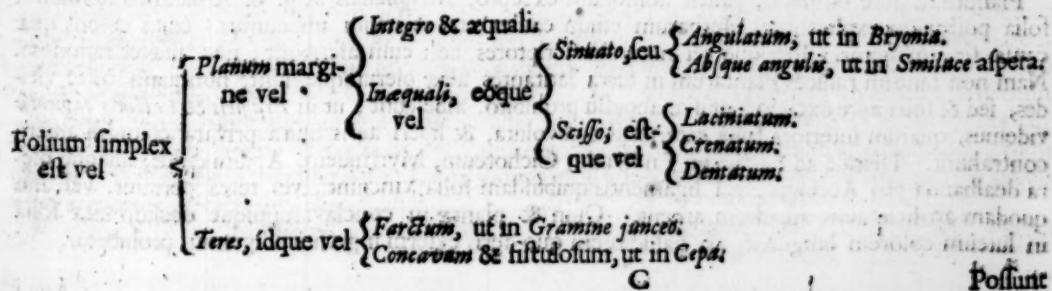 Folium simplex est vel
Planum margine vel
Integro & æquali.
Inæquali, eòque vel
Sinuato, seu
Angulatum, ut in Bryonia.
Absque angulis, ut in Smilace aspera.
Scisso; estque vel
Laciniatum.
Crenatum.
Dentatum.
Teres, idque vel
Farctum, ut in Gramine junceo.
Concavum & fistulosum, ut in Cepa.
C
Possunt